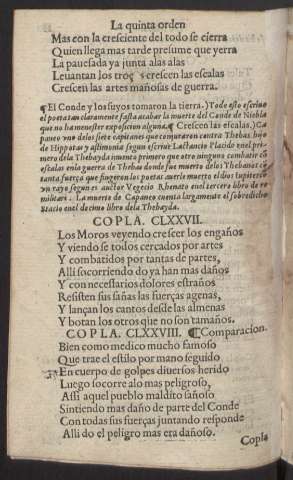 La quinta orden
Mas con la cresciente del todo se cierra
Quien llega mas tarde presume que yerra
La pauesada ya junta alas alas
Leuantan los troços crescen las escalas
Crescen las artes mañosas de guerra.
¶ El Conde y los suyos tomaron la tierra.) Todo esto escriue
el poeta tan claramente fasta acabar la muerte del Conde de Niebla
que no ha menester exposicion alguna. ¶ Crescen las escalas.) Ca
paneo vno delos siete capitanes que conjuraron contra Thebas hijo
de Hipponas y astimonia segun escriue Lactancio Placido enel pri
mero dela Thebayda inuento primero que otro ninguno combatir cõ
escalas enla guerra de Thebas donde fue muerto delos Thebanos cõ
tanta fuerça que fingeron los poetas auerle muerto el dios Iupiter cõ
vn rayo segun es auctor Vegecio Rhenato enel tercero libro de re
militari. La muerte de Capaneo cuenta largamente el sobredicho
Stacio enel decimo libro dela Thebayda.
COPLA. CLXXVII.
Los Moros veyendo crescer los engaños
Y viendo se todos cercados por artes
Y combatidos por tantas de partes,
Alli socorriendo do ya han mas daños
Y con necessarios dolores estraños
Resisten sus sañas las fuerças agenas,
Y lançan los cantos desde las almenas
Y botan los otros que no son tamaños.
COPLA. CLXXVIII. ¶ Comparacion.
Bien como medico mucho famoso
Que trae el estilo por mano seguido
En cuerpo de golpes diuersos herido
Luego socorre alo mas peligroso,
Assi aquel pueblo maldito sañoso
Sintiendo mas daño de parte del Conde
Con todas sus fuerças juntando responde
Alli do el peligro mas era dañoso.
Copla